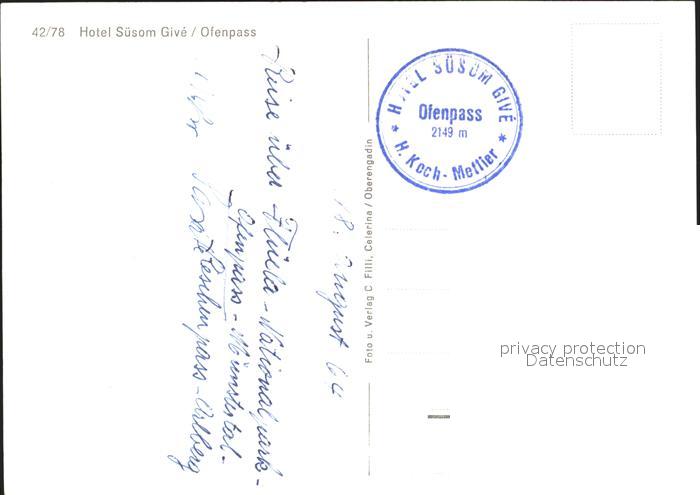 42/78 Hotel Süsom Givé / Ofenpass
HOTEL SÜSOM GIVÉ
Ofenpass
2149 m
* H. Koch - Mettier *
Foto u. Verlag C. Filli, Celerina / Oberengadin
18. August 64
Reise über Flüela - Nationalpark -
Ofenpass - Münstertal -
Reschenpass - Arlberg
privacy protection
Datenschutz